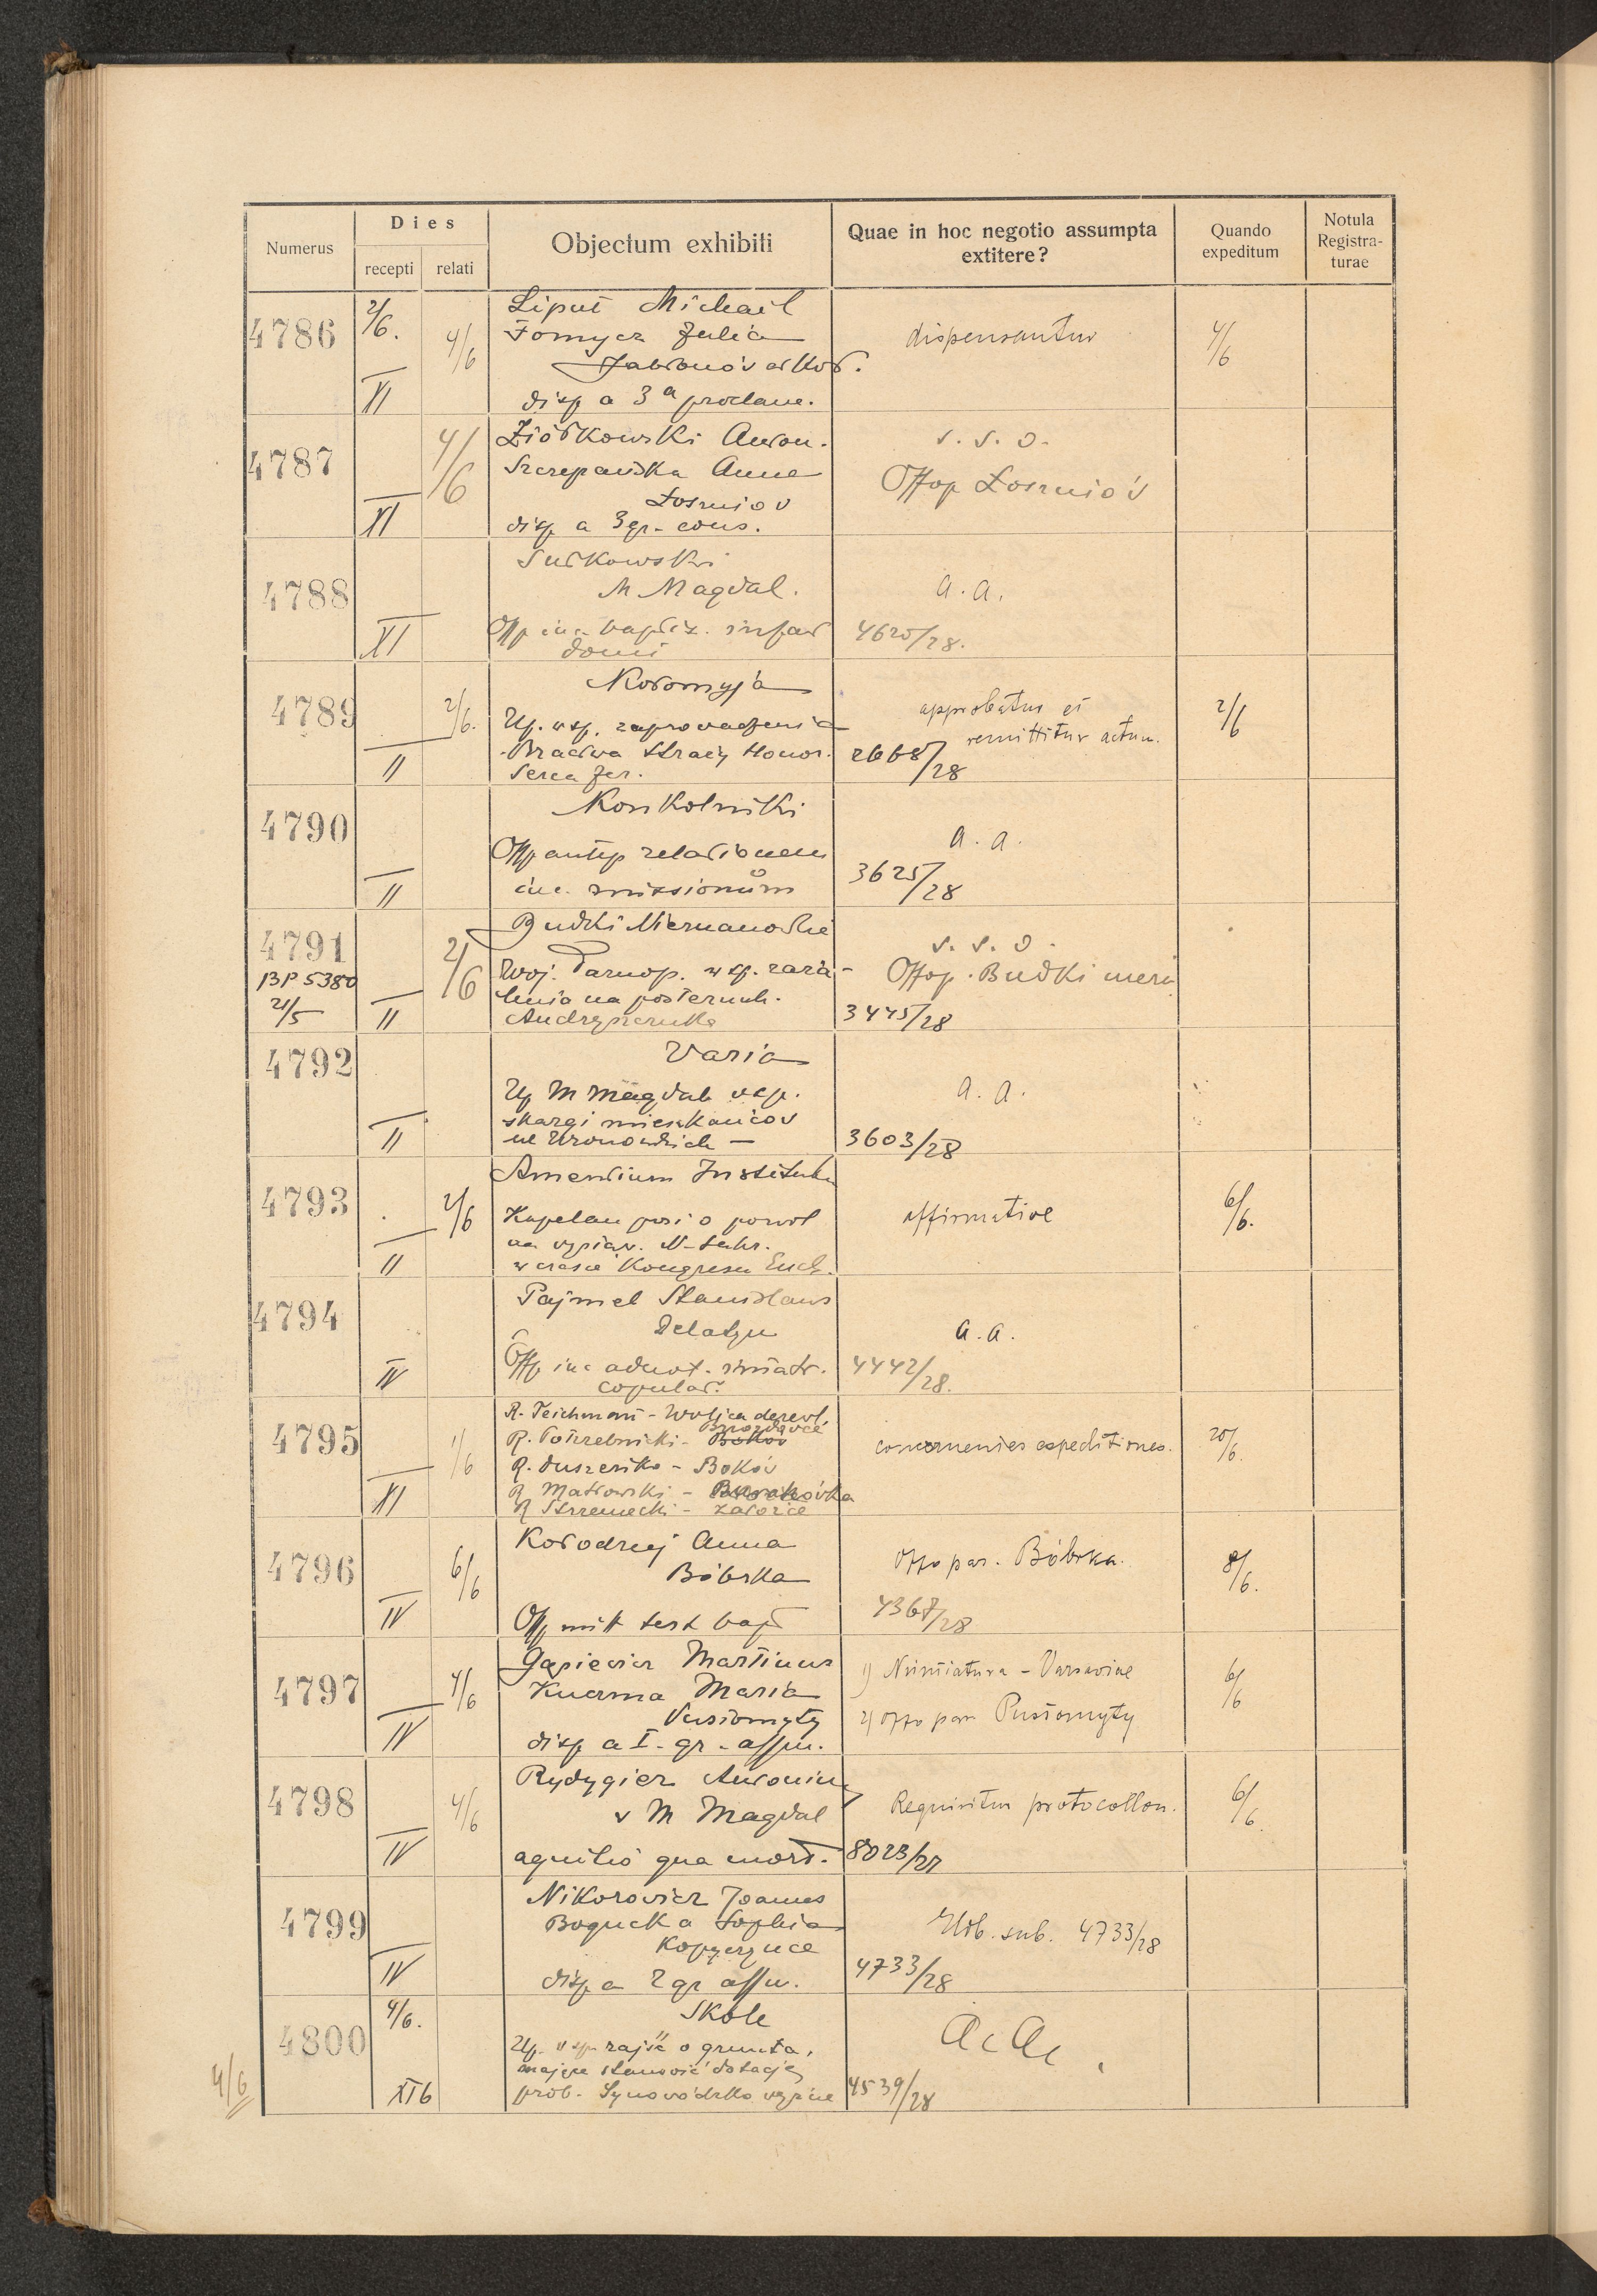 Numerus
Dies
recepti
relati
Objectum exhibiti
Quae in hoc negotio assumpta
extitere?
Quando
expeditum
Notula
Registra-
turae
4786
2/6.
XI
4/6
Liput Michael
Julia
disp a 3a proclam.
dispensantur
4/6
4787
XI
4/6
Ziółkowski Anton.
Szczepańska Anna
Łoszniov
disp a 3 gr. cons.
s. s. o.
Offop Łoszniov
4788
XI
M Magdal.
Off baptiz. infan
domi
a. a.
4625/28.
4789
II
2/6.
Kołomyja
Up. wsp. zaprowadzenia
Bractwa Straży Honor.
Serca Jez.
approbatur et
remittitur actum.
2668/28
2/6
4790
II
Konkolniki
Off antep relationem
inc. missionum
a. a.
3625/28
4791
BP 5380
21/5
II
2/6
Budki Nieznanowskie
Woj. Tarnop. wsp.
na posterunk.
s. s. o.
Offop. Budki niezn
3445/28
4792
II
Varia
Up M Magdal wsp.
skargi mieszkańców
a. a.
3603/28
4793
II
2/6
Institut
Kapelan prosi o pozwol
na wystaw. N-Sakr.
w czasie Kongresu Euch.
affirmative
6/6.
4794
IV
Pajmel Stanislaus
Delatyn
Off inc adnot. matr.
copulat.
a. a.
4442/28.
4795
XI
1/6
R. Teichmann - Wolica derewl.
Brzozdowce
R. Potrzebnicki - Bokóv
R. Duszeńko - Bokóv
R Strzemecki -
concernentes expeditiones.
20/6.
4796
IV
6/6
Kołodziej Anna
Bóbrka
Off mitt test bapt
Offo par. Bóbrka.
4367/28
8/6.
4797
IV
4/6
Gąsievicz Martinus
Kuczma Maria
Pustomyty
disp a I. gr. affin.
1) Nuntiatura - Varsaviae
2) offo par Pustomyty
6/6
4798
IV
4/6
Rydygier Antonius
v M Magdal
qua mort.
Requiritur protocollon.
8023/27
6/6.
4799
IV
Nikorovicz Joannes
Bogucka Sophia
Kopyczyńce
disp a 2 gr affin.
Elab. sub. 4733/28
4733/28
4800
4/6.
XI b
Skole
Up. wsp zajść o grunta,
mające stanowić dotację
prob. Synowódzko wyżne
a a
4539/28
4/6